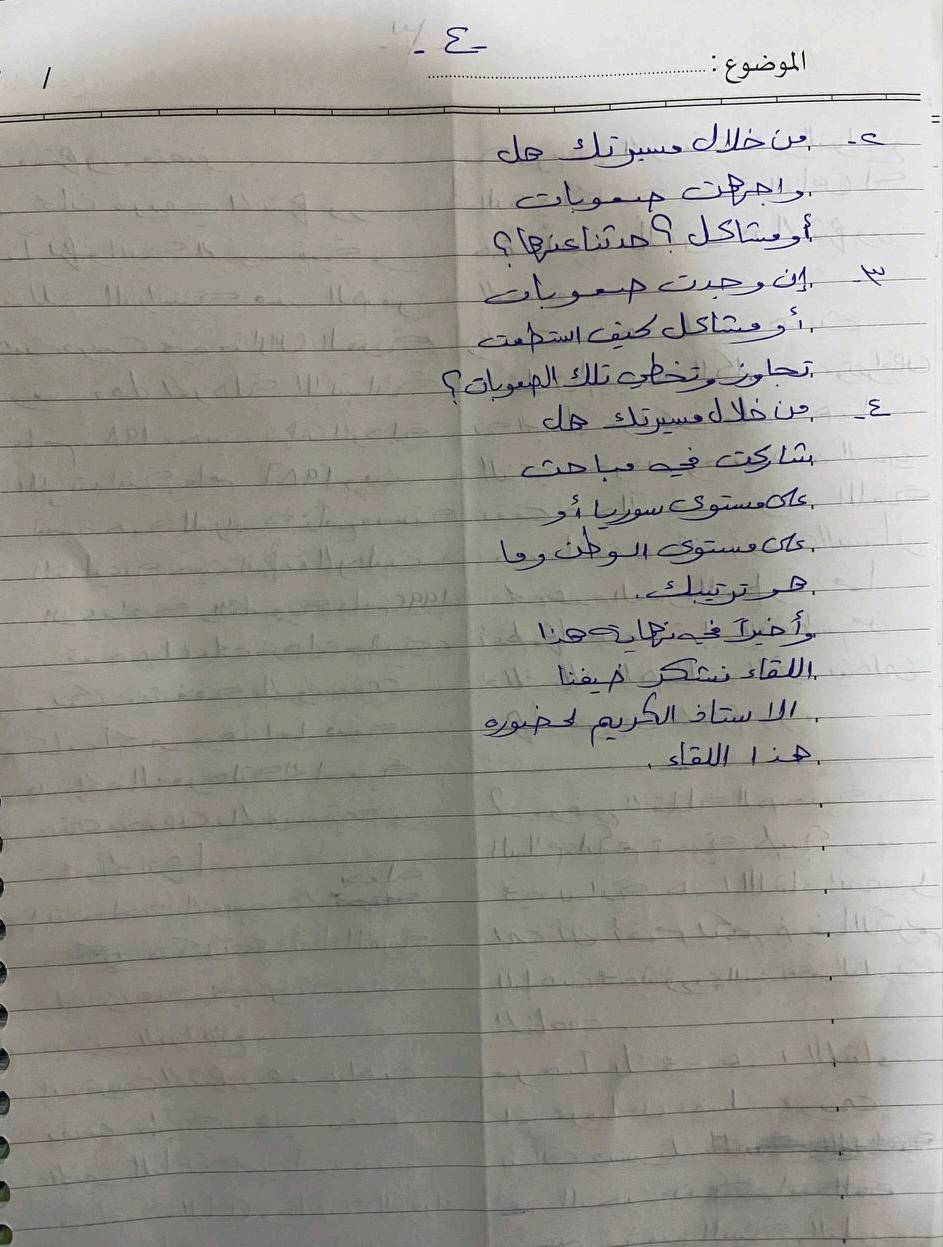 - ٤ -
الموضوع : ............................................
/
٢- من خلال مسيرتك هل
واجهت صعوبات
أو مشاكل ؟ حدثنا عنها ؟
٣- إن وجدت صعوبات
أو مشاكل كيف استطعت
تجاوز وتخطي تلك الصعوبات ؟
٤- من خلال مسيرتك هل
شاركت في مباحث
على مستوى سوريا أو
على مستوى الوطن وما
هو ترتيبك .
وأخيراً في نهاية هذا
اللقاء نشكر ضيفنا
الاستاذ الكريم لحضوره
هذا اللقاء .